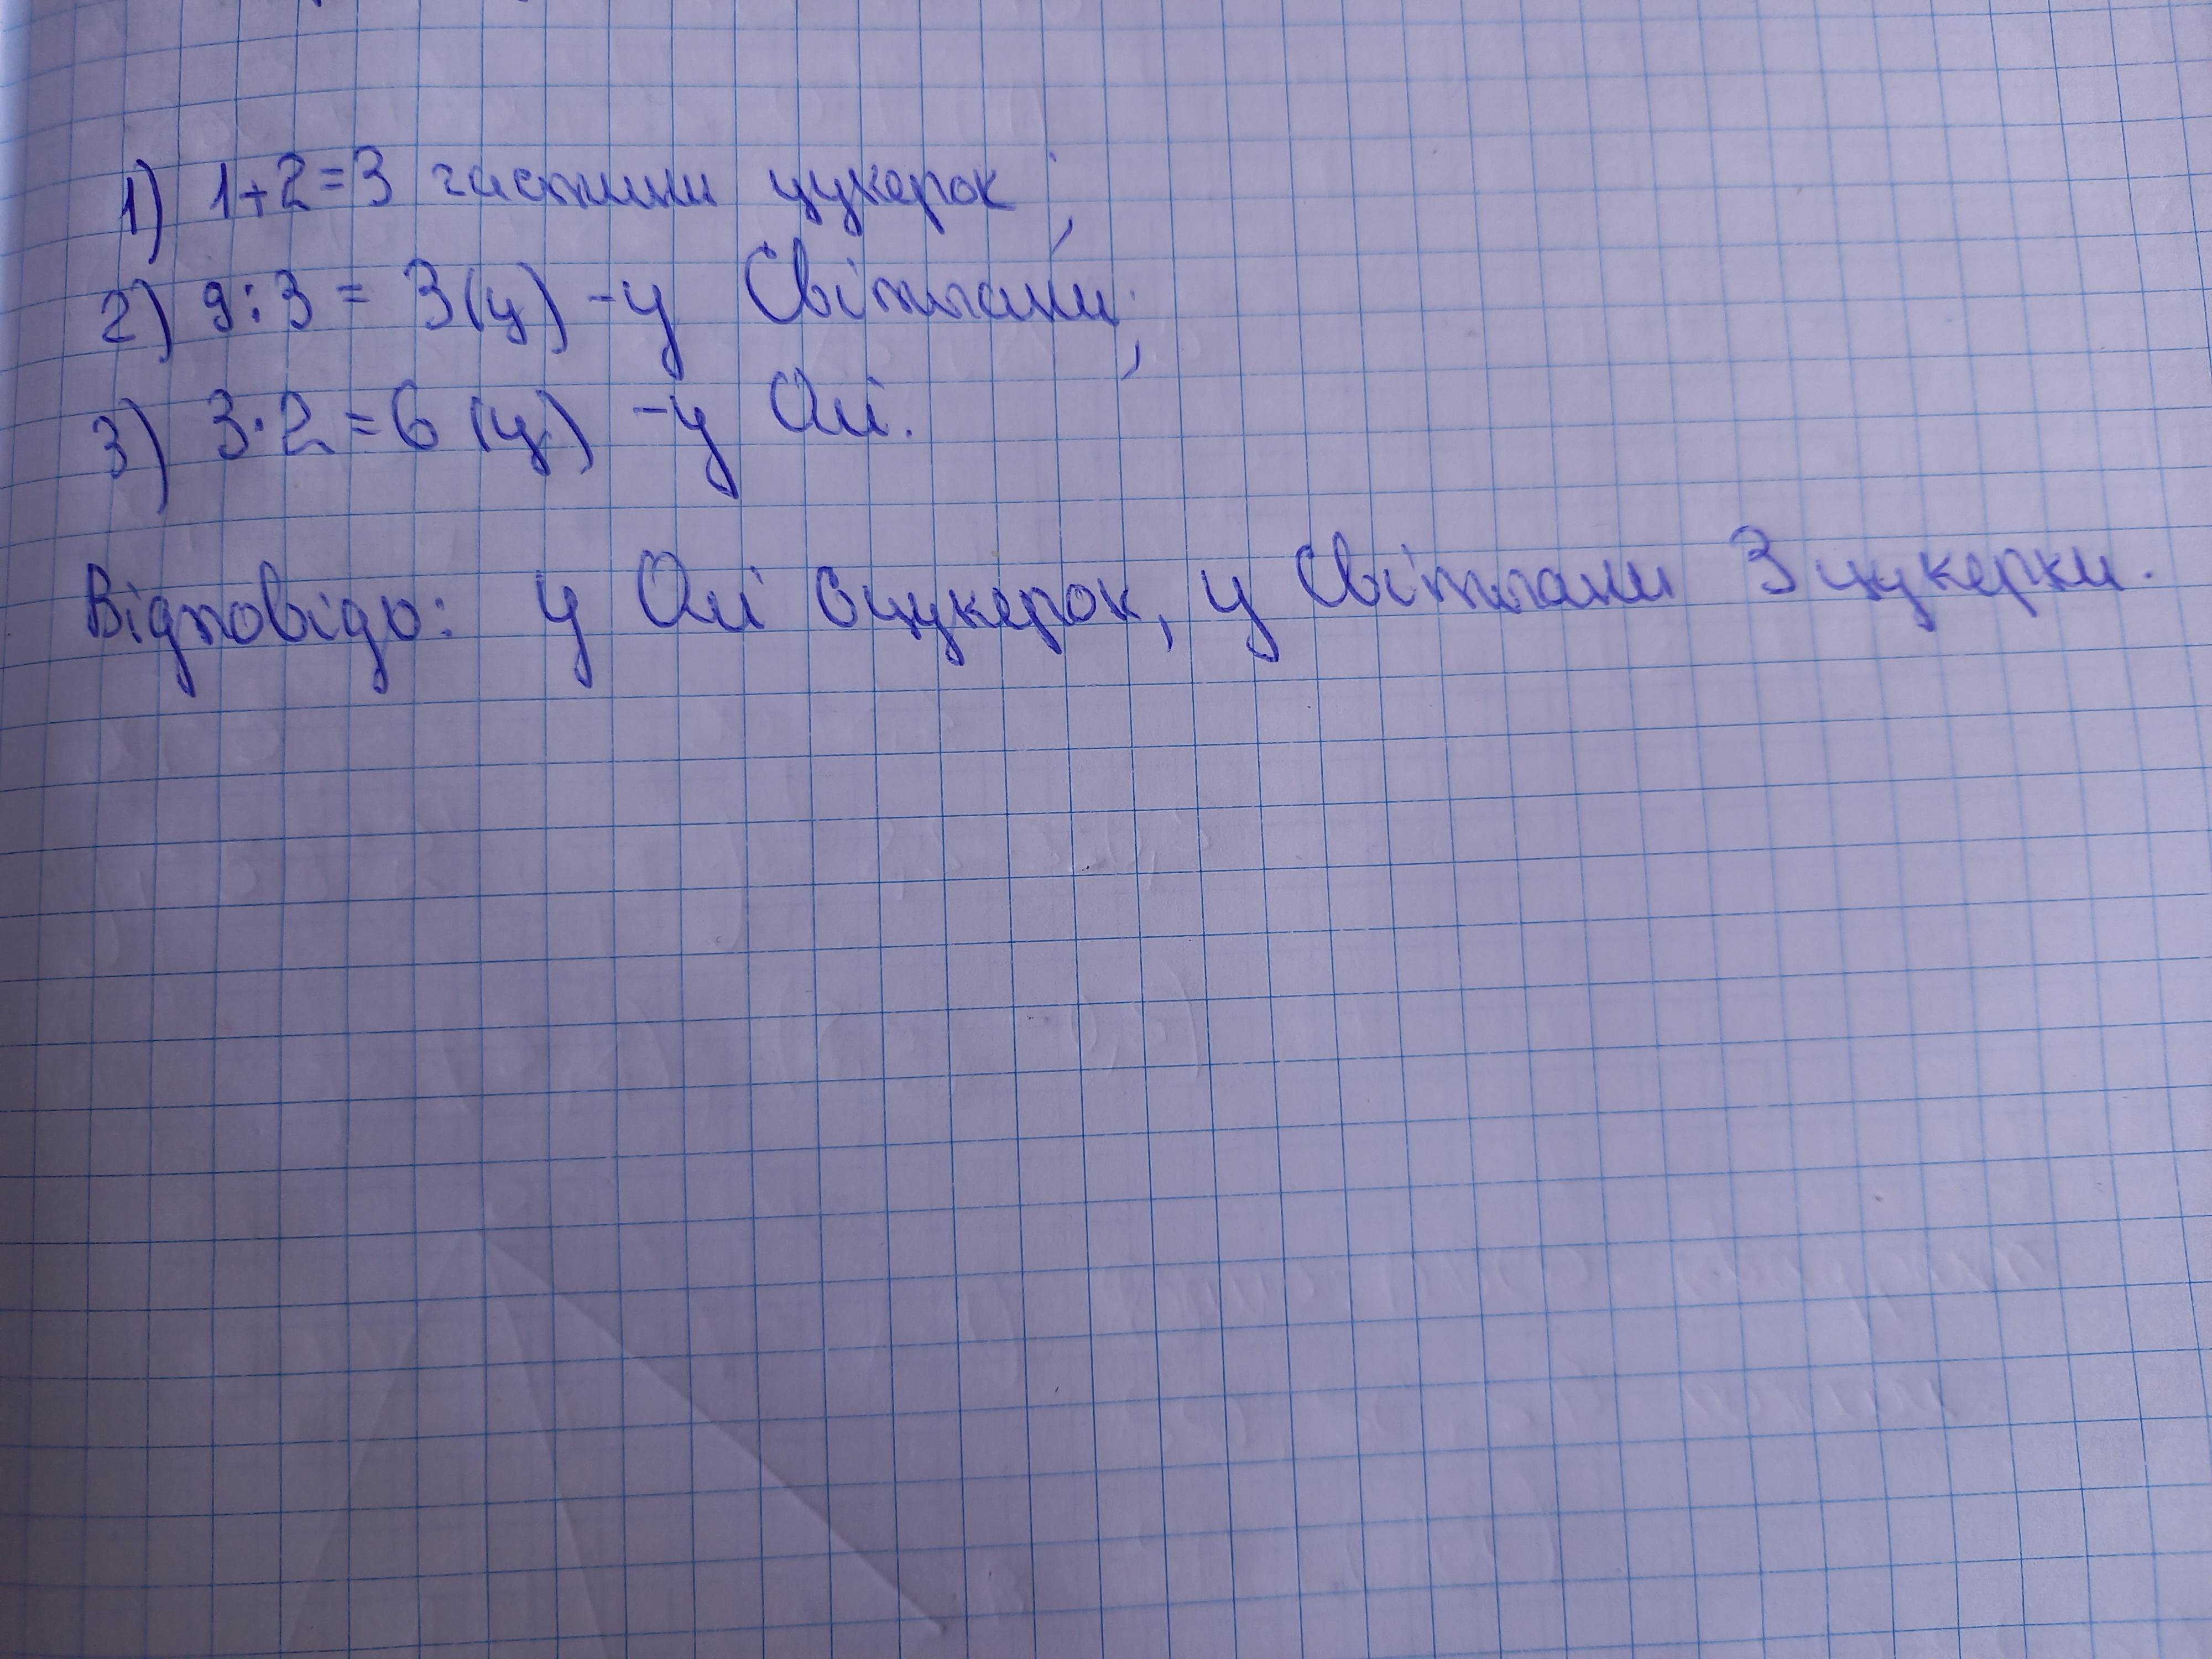 1) 1+2=3 частини цукерок;
2) 9:3 = 3(ц) - у Світлани;
3) 3·2=6 (ц) - у Олі.
Відповідь: у Олі 6 цукерок, у Світлани 3 цукерки.